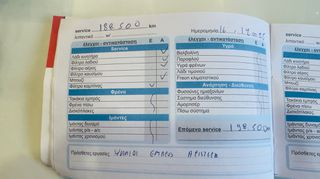 service 188.500 km
Ημερομηνία 16
λιπαντικό
έλεγχοι - αντικατάσταση Ε Α
Service
Λάδι κινητήρα
Φίλτρο λαδιού
Φίλτρο αέρος
Φίλτρο καυσίμου
Μπουζί
Φίλτρο καμπίνας
Φρένα
Τακάκια εμπρός
Τακάκια πίσω
Δισκόπλακες
Ιμάντες
Ιμάντας δυναμό
Ιμάντας υ/τ - a/c
Ιμάντας χρονισμού
έλεγχοι - αντικατάσταση Ε Α
Υγρά
Βαλβολίνη
Παραφλού
Υγρά φρένων
Λάδι τιμονιού
Freon κλιματιστικού
Ανάρτηση - Διεύθυνση
Φυσούνες ημιαξονίων
Σύστημα διεύθυνσης
Αμορτισέρ
Πίσω σύστημα
Επόμενο service 198.500 km
Πρόσθετες εργασίες ΕΜΠΡΟΣ ΑΡΙΣΤΕΡΑ